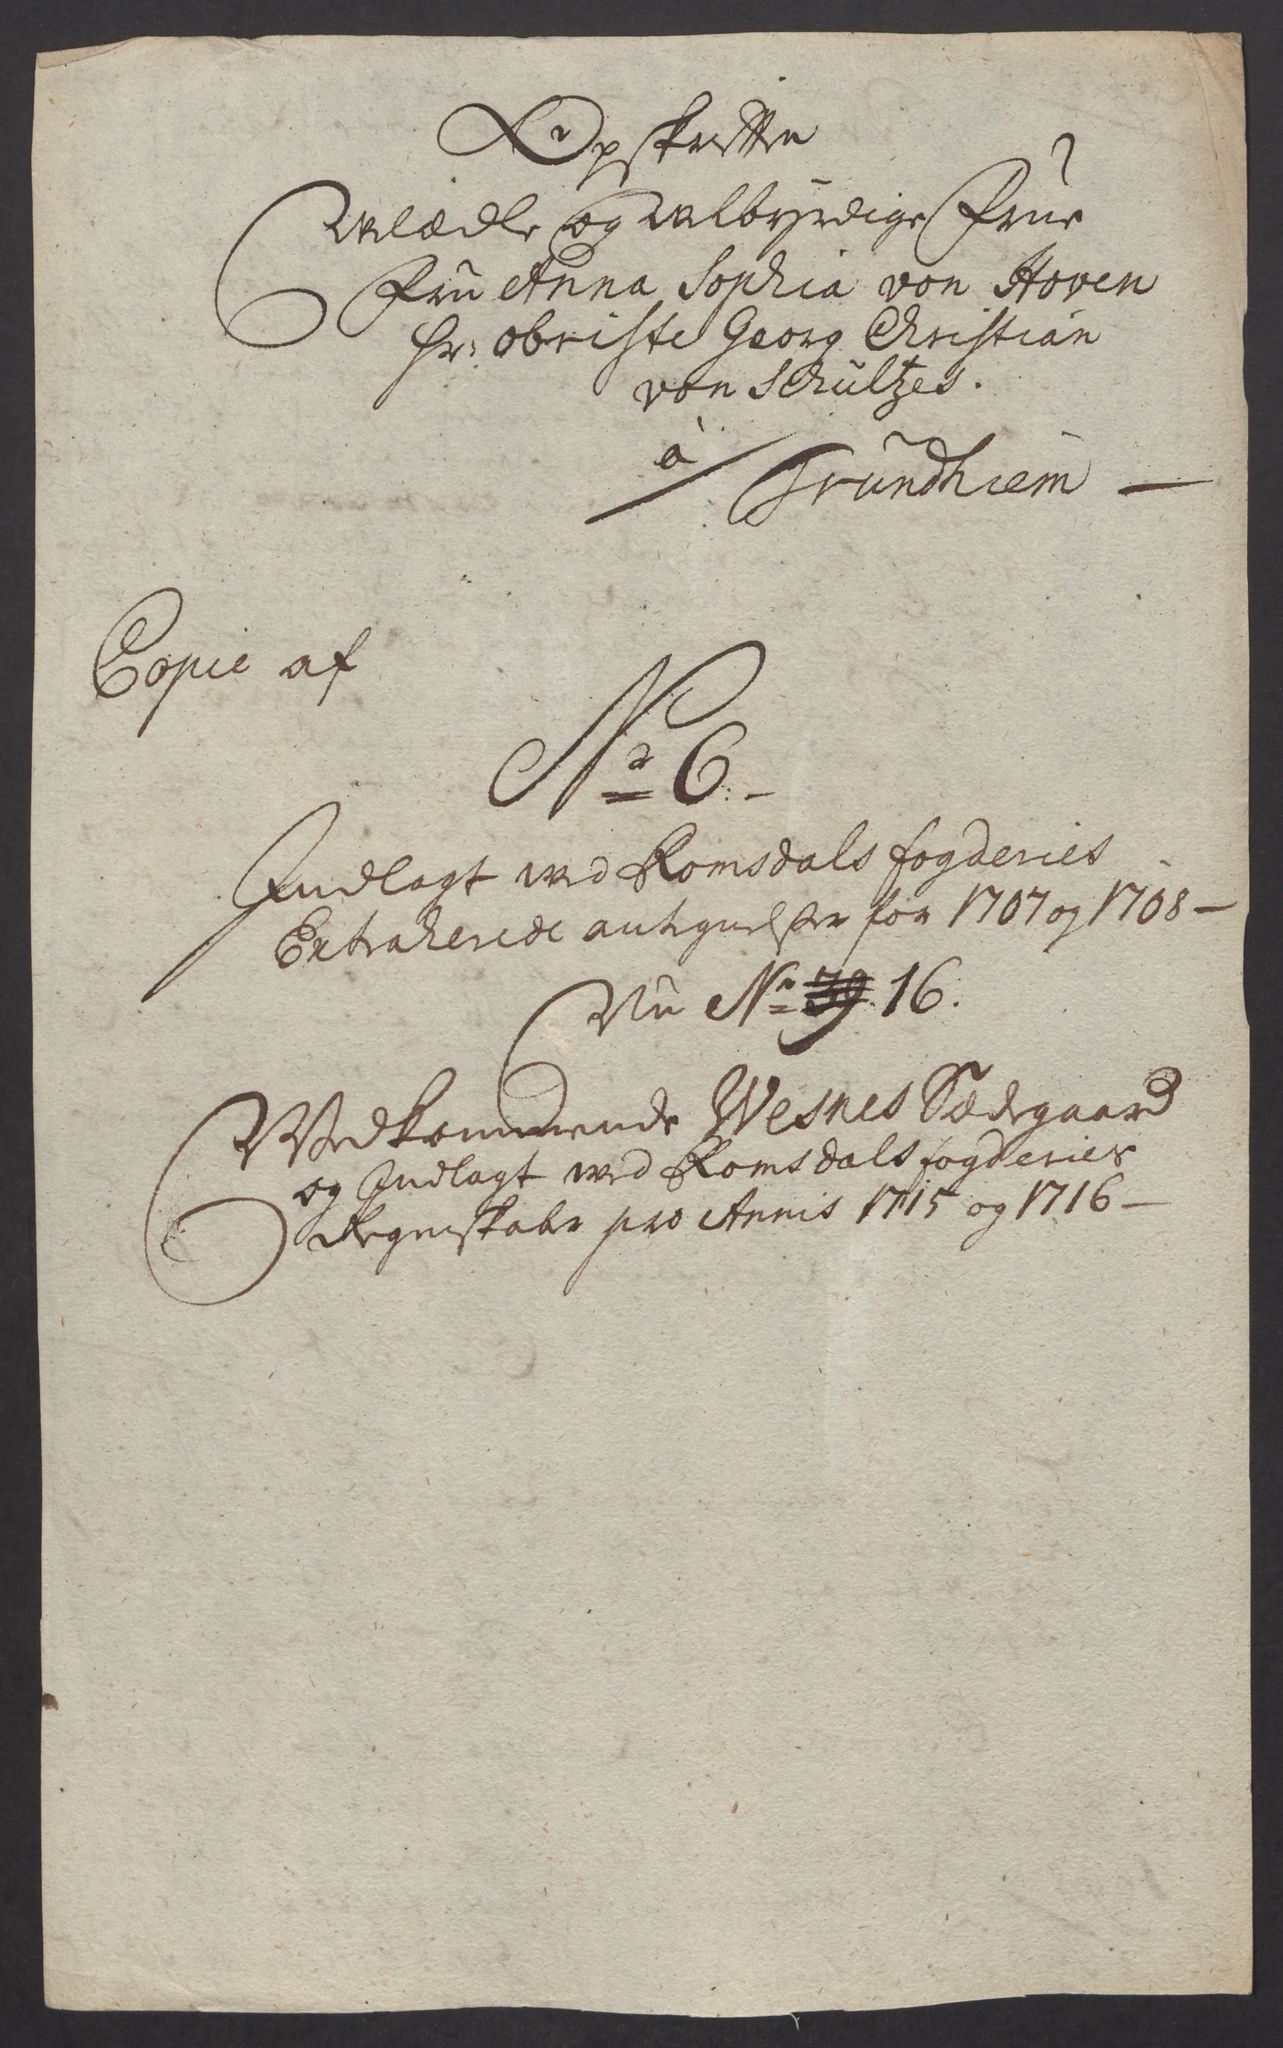 Opskrifften
Welædle og welbyrdige Frue
Fru Anna Sophia von Hoven
Hr: obriste Georg Christian
von Schultzes.
à
Trundhiem —
Copie af
No 6:-
Indlagt wed Romsdals fogderies
Extraherede antegnelser for 1707 og 1708 —
Nu No 39 16.
Wedkommende Wesnes Sædegaard
og Indlagt wed Romsdals fogderies
Regneskaber pro Annis 1715 og 1716 —